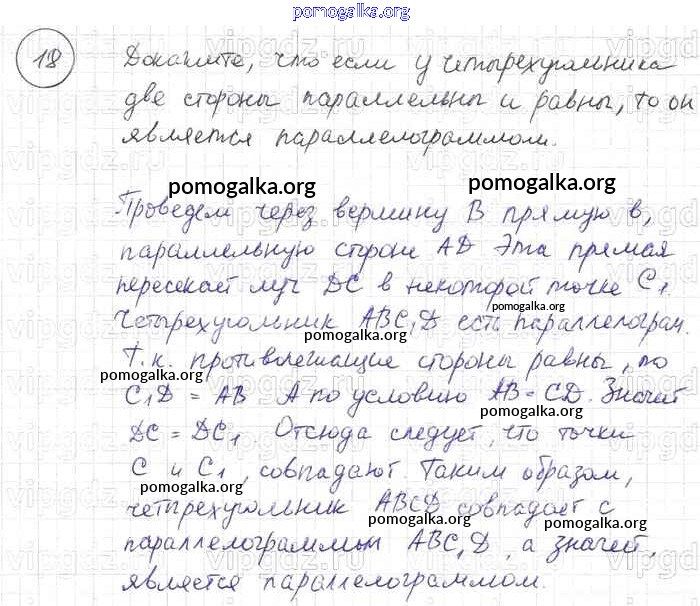 pomogalka.org
18 Докажите, что если у четырехугольника
две стороны параллельны и равны, то он
является параллелограммом.
pomogalka.org pomogalka.org
Проведем через вершину B прямую в,
параллельную стороне AD Эта прямая
пересекает луч DC в некоторой точке C₁.
pomogalka.org
Четырехугольник ABC₁D есть параллелограм.
pomogalka.org
Т.к. противолежащие стороны равны, то
pomogalka.org
C₁D = AB А по условию AB = CD. Значит
pomogalka.org
DC = DC₁ Отсюда следует, что точки
C и C₁, совпадают. Таким образом,
pomogalka.org
четырехугольник ABCD совпадает с
pomogalka.org pomogalka.org
параллелограммом ABC₁D, а значит,
является параллелограммом.
pomogalka.org